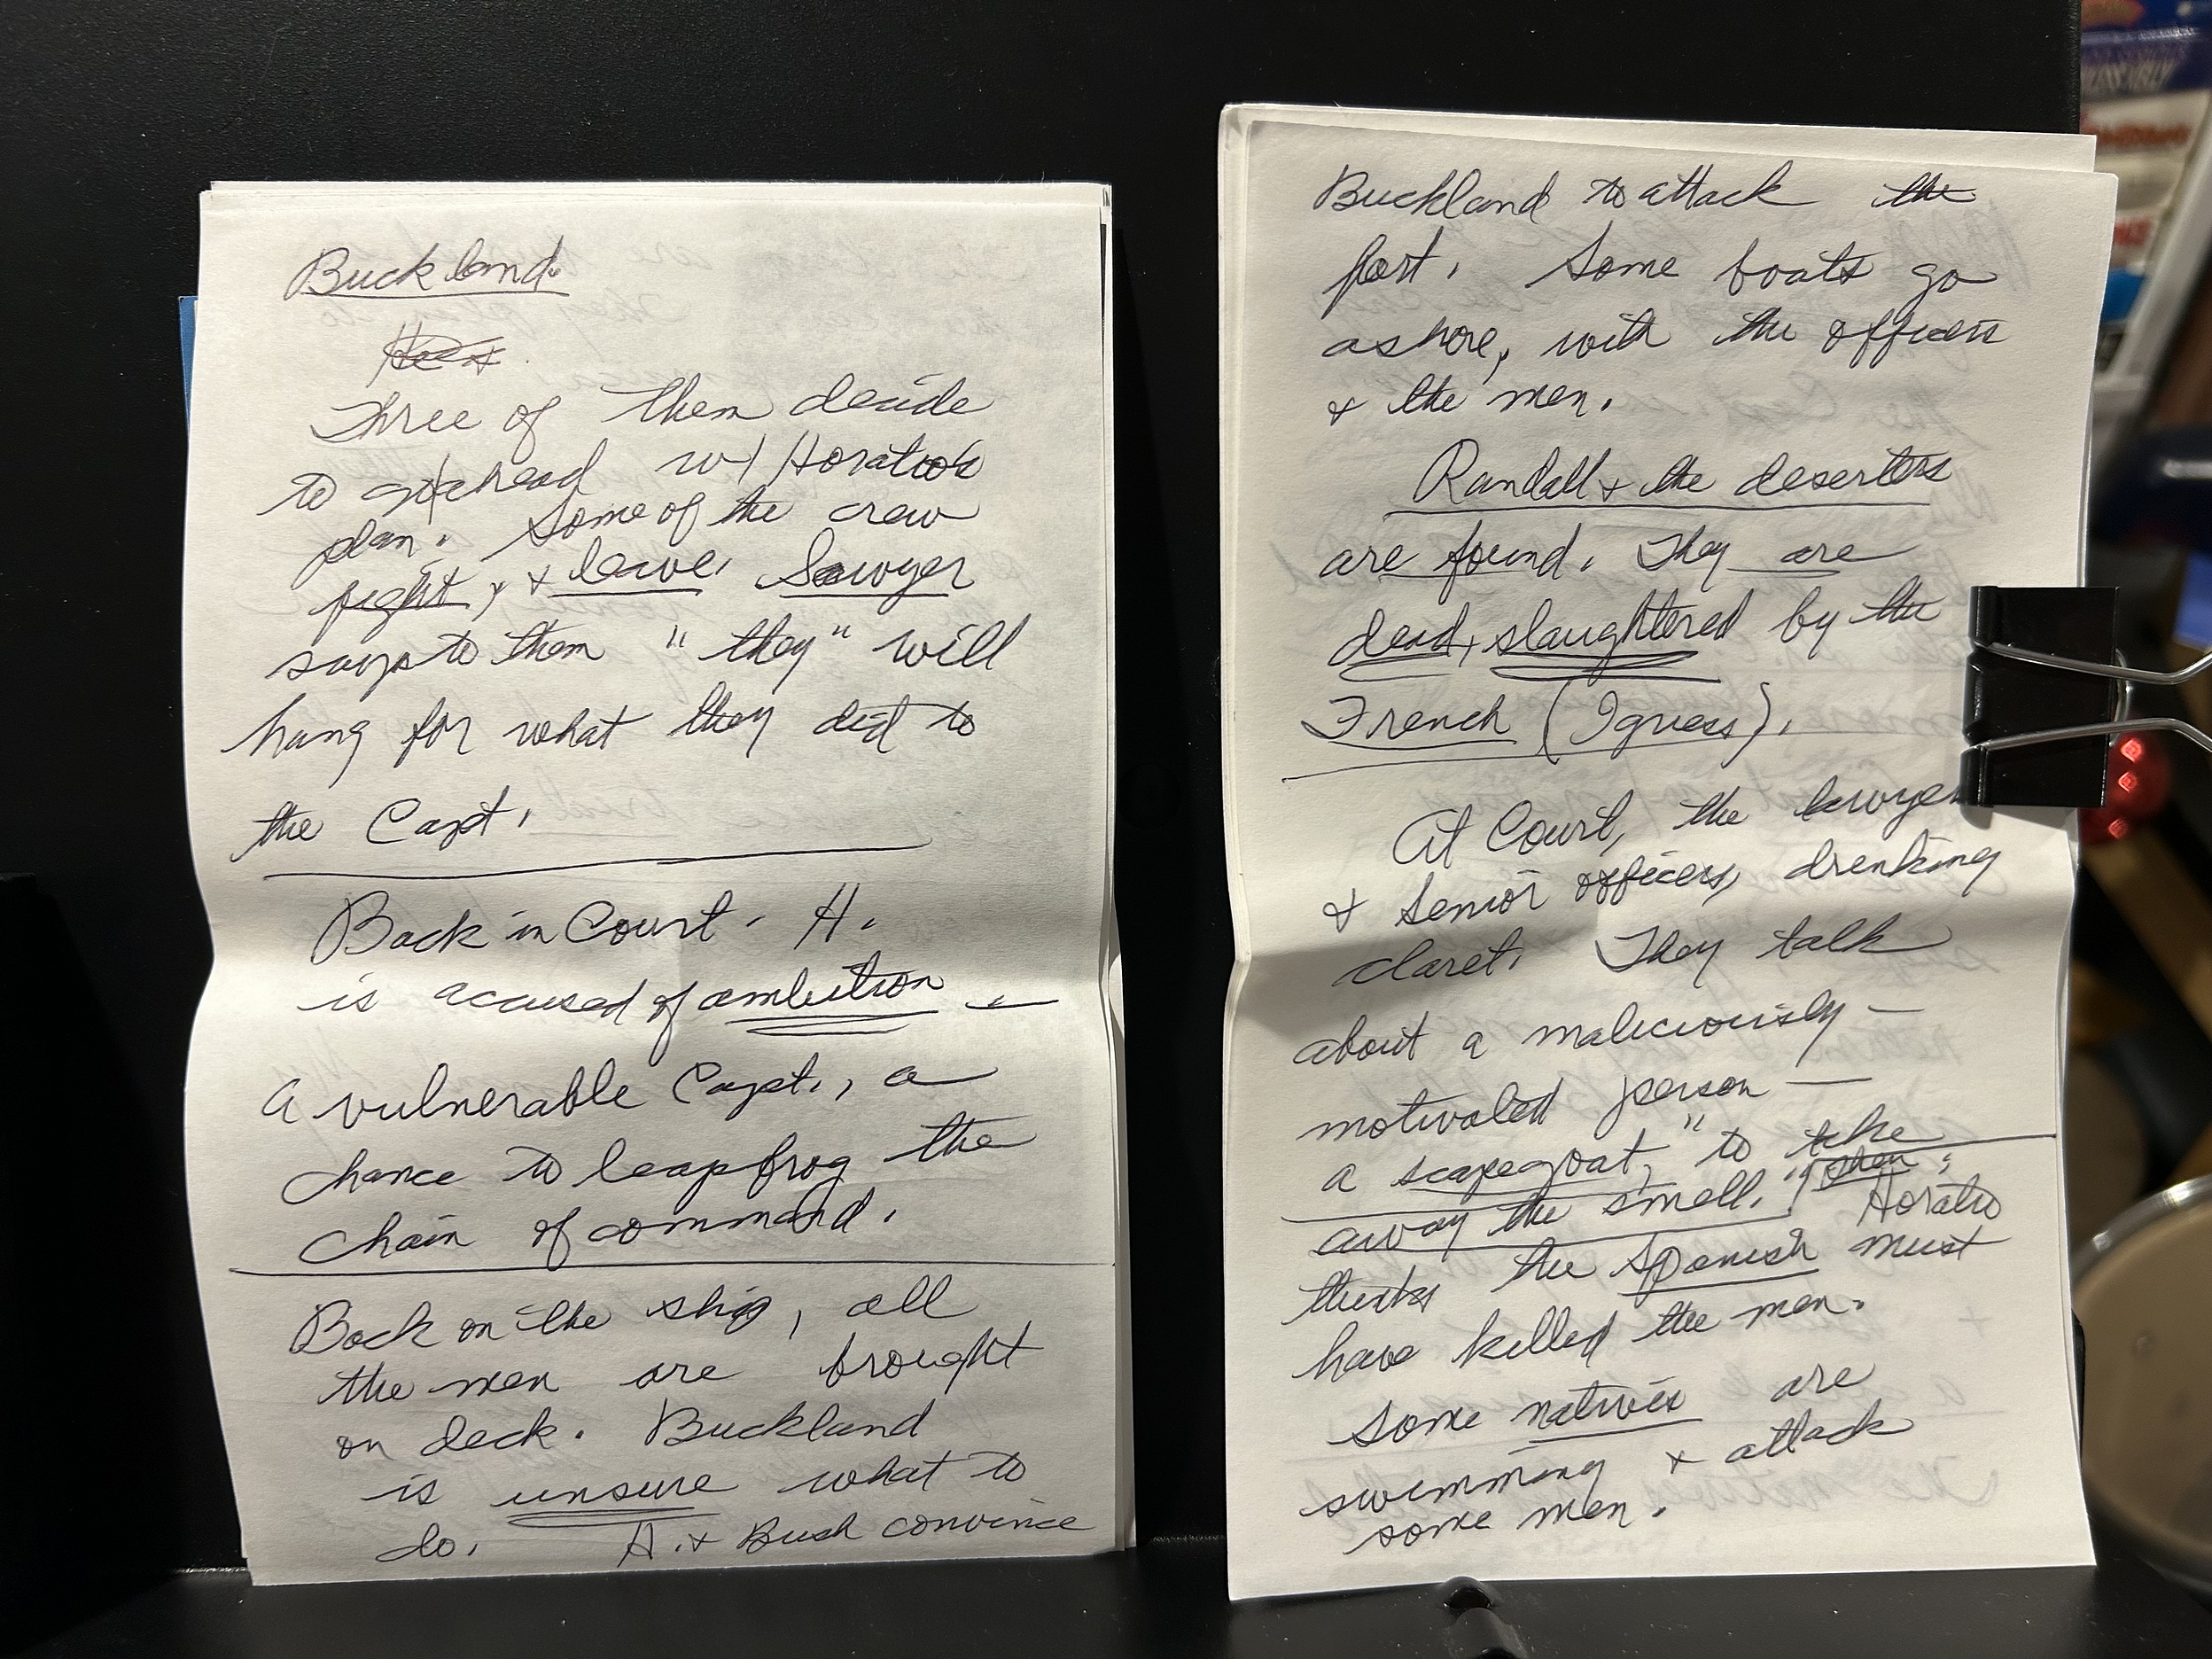 Buckland.
Three of them decide
to go ahead w/ Horatio's
plan. Some of the crew
fight, & leave. Sawyer
says to them "they" will
hang for what they did to
the Capt.
Back in Court. H.
is accused of ambition —
a vulnerable Capt., a
chance to leapfrog the
chain of command.
Back on the ship, all
the men are brought
on deck. Buckland
is unsure what to
do. H. & Bush convince
Buckland to attack the
fort. Some boats go
ashore, with the officers
& the men.
Randall & the deserters
are found. They are
dead, slaughtered by the
French (I guess).
At Court, the lawyer
& senior officers, drinking
claret. They talk
about a maliciously –
motivated person —
a scapegoat, "to take
away the smell."
Horatio
thinks the Spanish must
have killed the men.
Some natives are
swimming & attack
some men.